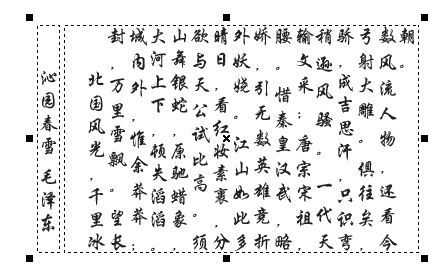 沁园春雪 毛泽东
北国风光,千里冰
封,万里雪飘。望长
城内外,惟余莽莽;
大河上下,顿失滔滔。
山舞银蛇,原驰蜡象,
欲与天公试比高。须
晴日,看红妆素裹,分
外妖娆。江山如此多
娇,引无数英雄竞折
腰。惜秦皇汉武,略
输文采;唐宗宋祖,
稍逊风骚。一代天
骄,成吉思汗,只识弯
弓射大雕。俱往矣
数风流人物,还看今
朝。